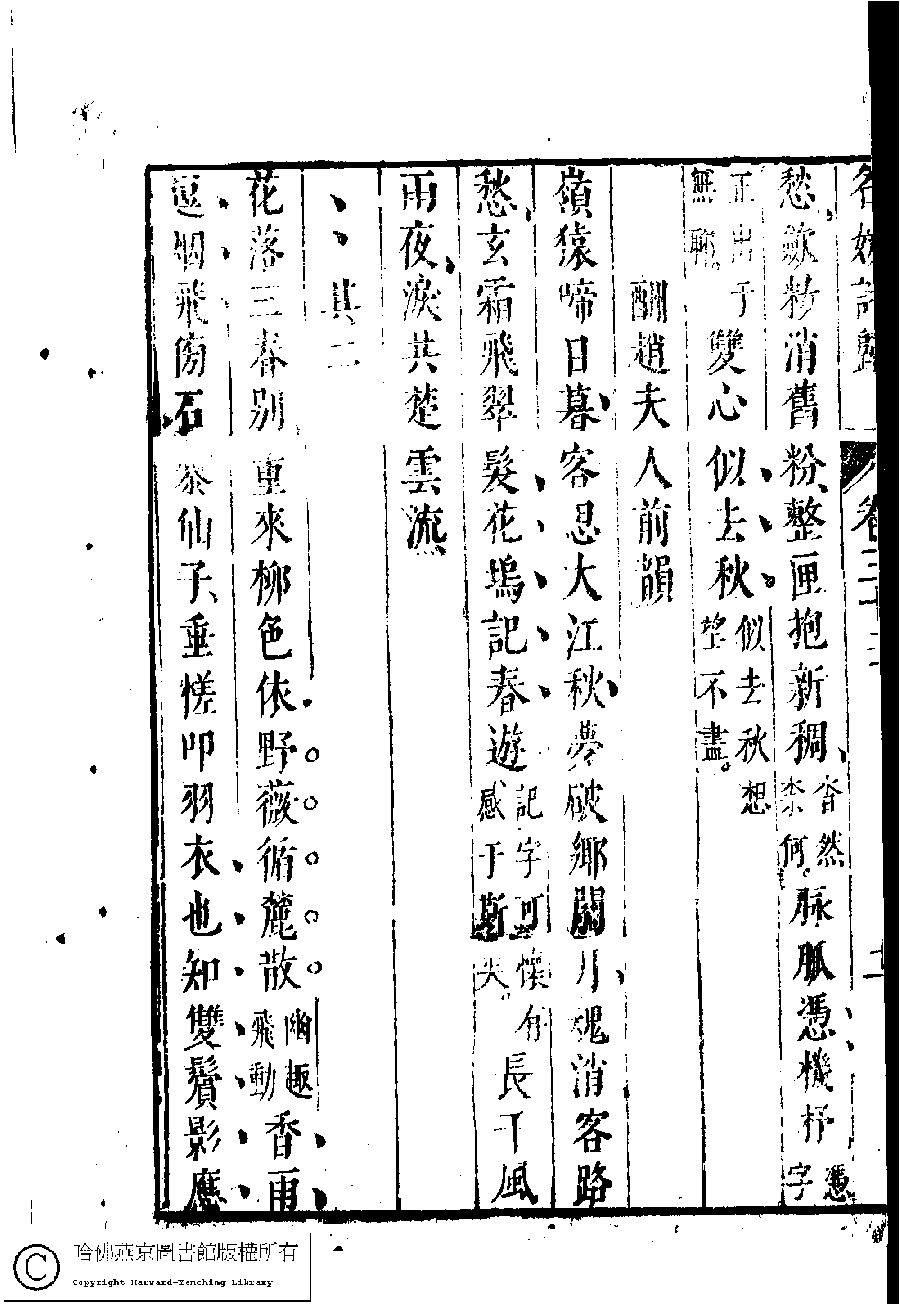 名媛詩歸 卷三十三
愁歛粉消舊粉整匣抱新稠杳然柰何脉脉憑機杼憑字
正出于無聊雙心似去秋似去秋想望不盡
酬趙夫人前韻
嶺猿啼日暮客思大江秋夢破鄉關月魂消客路
愁玄霜飛翠髮花塢記春遊記字可懷有感于斯矣長干風
雨夜淚共楚雲流
其二
花落三春別重來柳色依野薇循麓散幽趣飛動香雨
逗烟飛傍石叅仙子垂慳叩羽衣也知雙鬢影應
哈佛燕京圖書館版權所有
Copyright Harvard-Yenching Library